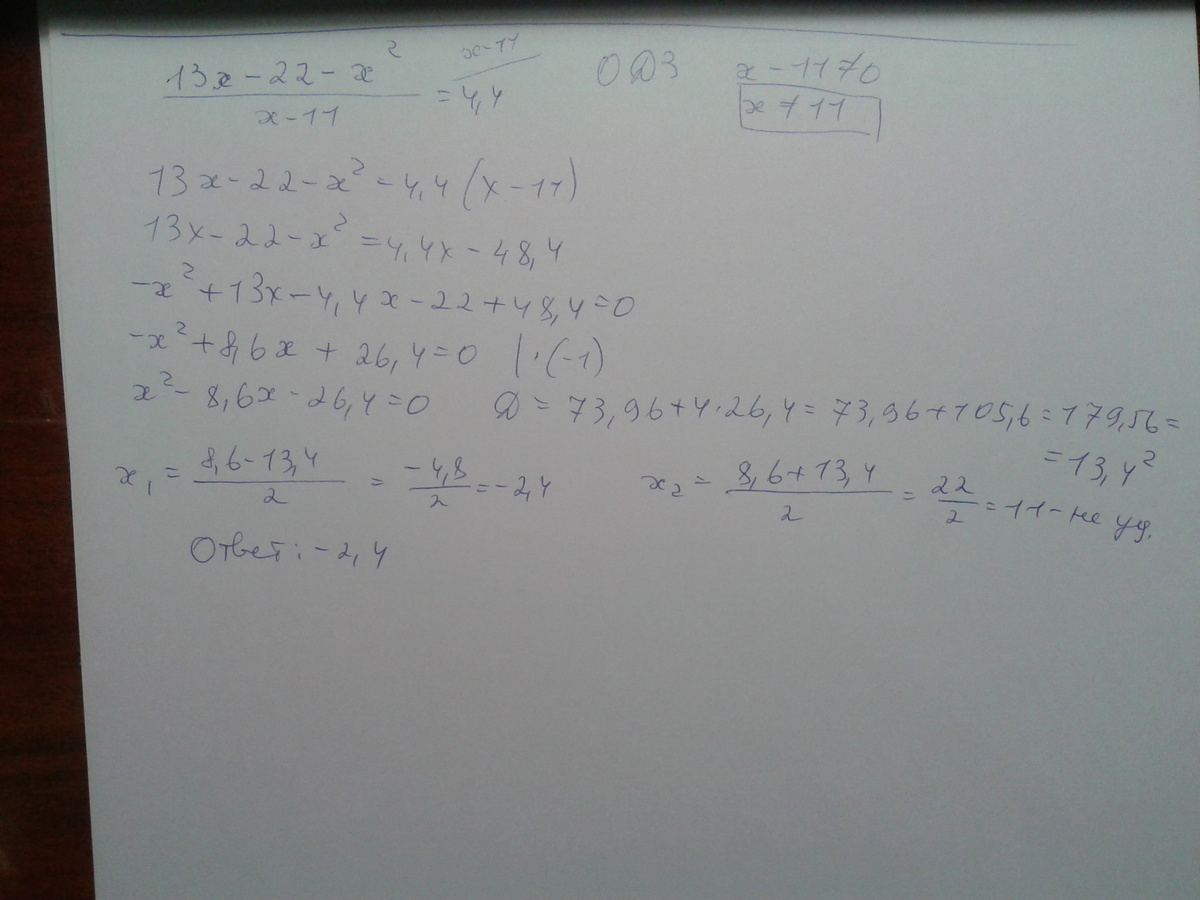 (13x-22-x²)/(x-11) = 4,4 / x-11 ОДЗ x-11≠0
x≠11
13x-22-x²=4,4(x-11)
13x-22-x²=4,4x-48,4
-x²+13x-4,4x-22+48,4=0
-x²+8,6x+26,4=0 |·(-1)
x²-8,6x-26,4=0 D=73,96+4·26,4=73,96+105,6=179,56=
=13,4²
x₁=(8,6-13,4)/2=-4,8/2=-2,4 x₂=(8,6+13,4)/2=22/2=11-не уд.
Ответ: -2,4